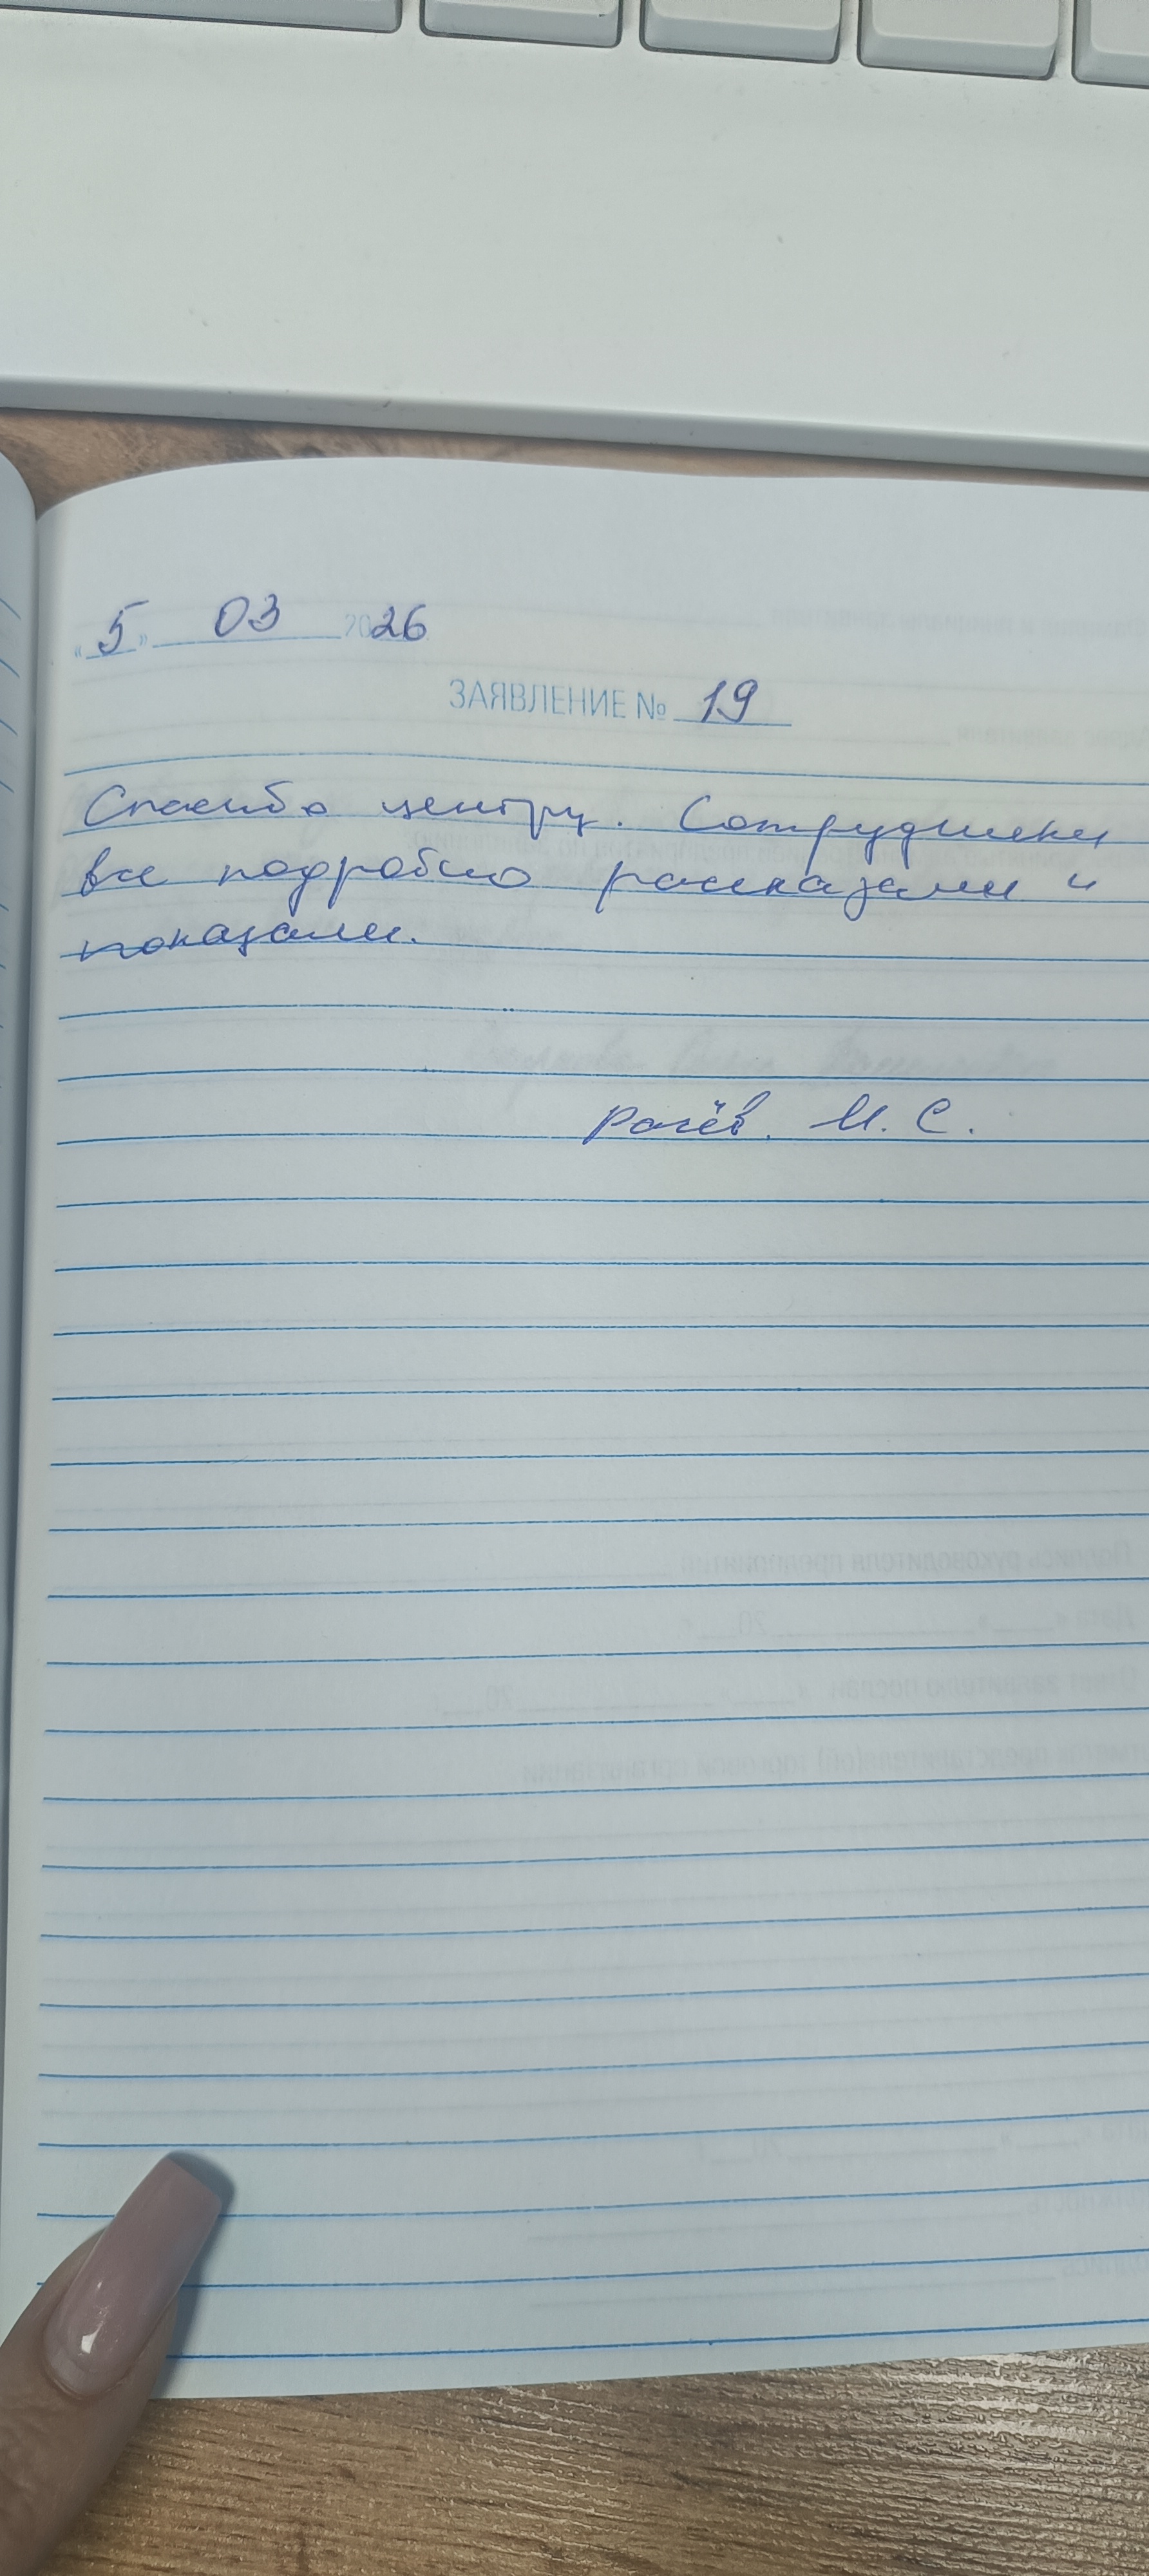 «5» 03 2026
ЗАЯВЛЕНИЕ № 19
Спасибо центру. Сотрудники
все подробно рассказали и
показали.
И. С.